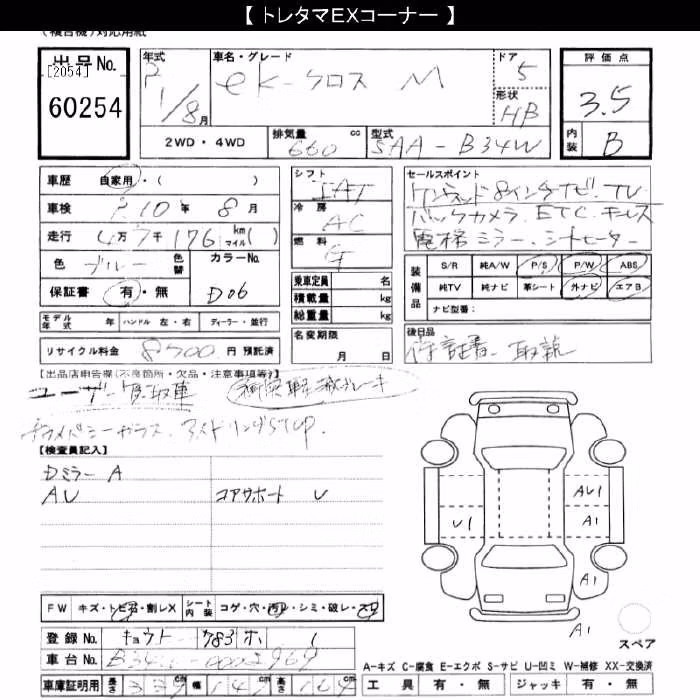 【 トレタマEXコーナー 】
(複合機)対応用紙
出品No. [2054] 60254
年式 1/8月
車名・グレード ek-クロス M
ドア 5
形状 HB
評価点 3.5
内装 B
2WD・4WD
排気量 660 cc
型式 5AA-B34W
車歴 自家用・( )
車検 R10年8月
走行 4万7千176 km マイル( )
色 ブルー 色替 カラーNo. D06
保証書 有・無
シフト IAT
冷房 AC
燃料 G
乗車定員 名
積載量 kg
総重量 kg
セールスポイント
ケンウッド8インチナビ.TV.
バックカメラ.ETC.キーレス
電格ミラー.シートヒーター
装備品 S/R 純A/W P/S P/W ABS
純TV 純ナビ 革シート 外ナビ エアB
ナビ型番:
モデル年式 年 ハンドル 左・右 ディーラー・並行
リサイクル料金 8500 円 預託済
名変期限 月 日
後日品
保証書.取説
【出品店申告欄(不良箇所・欠品・注意事項等)】
ユーザー買取車 衝突軽減ブレーキ
【検査員記入】
Dミラー A
AU コアサポート U
AU1
U1 A1
A1
A1
スペア
FW キズ・トビ石・割レX シート内装 コゲ・穴・汚レ・シミ・破レ・スレ
登録No. キョウト 783 ホ 1
車台No.
車庫証明用 長さ 339 cm 幅 147 cm 高さ 164 cm
A-キズ C-腐食 E-エクボ S-サビ U-凹ミ W-補修 XX-交換済
工具 有・無 ジャッキ 有・無